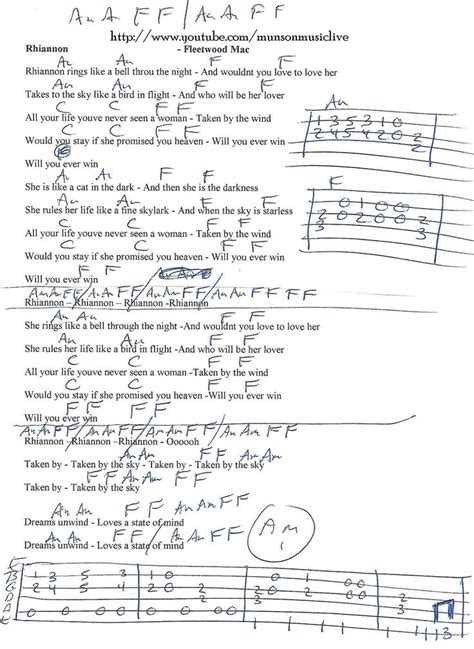 Am Am F F / Am Am F F
http://www.youtube.com/munsonmusiclive
Rhiannon - Fleetwood Mac
Am Am F F
Rhiannon rings like a bell throu the night - And wouldnt you love to love her
Am Am F F
Takes to the sky like a bird in flight - And who will be her lover
C C F F
All your life youve never seen a woman - Taken by the wind
C C F F
Would you stay if she promised you heaven - Will you ever win
Am
1 3 5 3 1 0
2 4 5 4 2 0 2
2
Will you ever win
Am Am F F
She is like a cat in the dark - And then she is the darkness
Am Am F F
She rules her life like a fine skylark - And when the sky is starless
F
0 1 0 0
2 0 2 0 0 2
3 3
C C F F
All your life youve never seen a woman - Taken by the wind
C C F
Would you stay if she promised you heaven - Will you ever win
F F
Will you ever win
Am Am F F / Am Am F F / Am Am F F / Am Am F F F F
Rhiannon – Rhiannon – Rhiannon -Rhiannon
Am Am F F
She rings like a bell through the night -And wouldnt you love to love her
Am F F
She rules her life like a bird in flight -And who will be her lover
C C F F
All your life youve never seen a woman -Taken by the wind
C C F F
Would you stay if she promised you heaven -Will you ever win
F F F F
Will you ever win
Am Am F F / Am Am F F / Am Am F F / Am Am F F
Rhiannon –Rhiannon –Rhiannon - Oooooh
Am Am F F Am Am
Taken by - Taken by the sky - Taken by - Taken by the sky
F F Am Am F F
Taken by - Taken by the sky
Am Am F F Am Am F F
Dreams unwind - Loves a state of mind
Am Am F F / Am Am F F
Dreams unwind - Loves a state of mind
Am
E
B 1 3 5 3 1 0 0 1 0 0
G 2 4 5 4 2 0 2 2 0 2 0 0 2 2
D 2 3 3
A 0 0 0 0
E